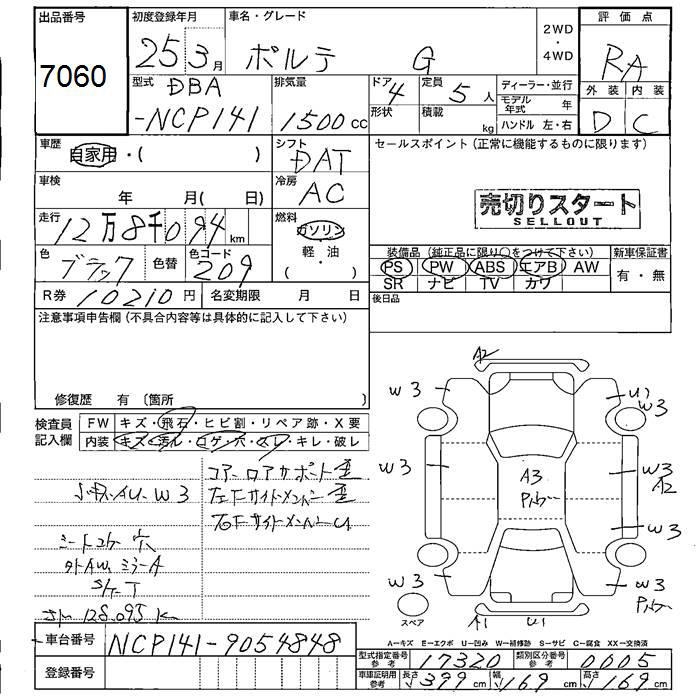 出品番号
7060
初度登録年月
25 3月
車名・グレード
ポルテ G
2WD
・
4WD
評価点
RA
外装 内装
D C
型式
DBA
-NCP141
排気量
1500cc
ドア
4
定員
5人
形状
積載
kg
ディーラー・並行
モデル年式 年
ハンドル 左・右
車歴
自家用・( )
シフト
DAT
車検
年 月( 日)
冷房
AC
走行
12万8千094km
燃料
ガソリン
軽・油
( )
色
ブラック
色替
色コード
209
R券 10210円
名変期限 月 日
セールスポイント(正常に機能するものに限ります)
売切りスタート
SELLOUT
装備品(純正品に限り○をつけて下さい)
PS PW ABS エアB AW
SR ナビ TV カワ
新車保証書
有・無
後日品
注意事項申告欄(不具合内容等は具体的に記入して下さい)
修復歴 有〔箇所 〕
検査員
記入欄
FW キズ・飛石・ヒビ割・リペア跡・X要
内装 キズ・汚レ・コゲ・穴・スレ・キレ・破レ
コアーロアサポート歪
左Fサイドメンバー歪
右FサイドメンバーU
W3
シートコゲ穴
ミラーA
128,095 K
A2
W3
U1
W3
W3
A3
W3
A2
W3
W3
W3
A1
U1
スペア
A−キズ E−エクボ U−凹み W−補修跡 S−サビ C−腐食 XX−交換済
車台番号 NCP141-9054848
登録番号
型式指定番号
参考
17320
類別区分番号
参考
0005
車庫証明用
参考
長さ 399cm
幅 169cm
高さ 169cm